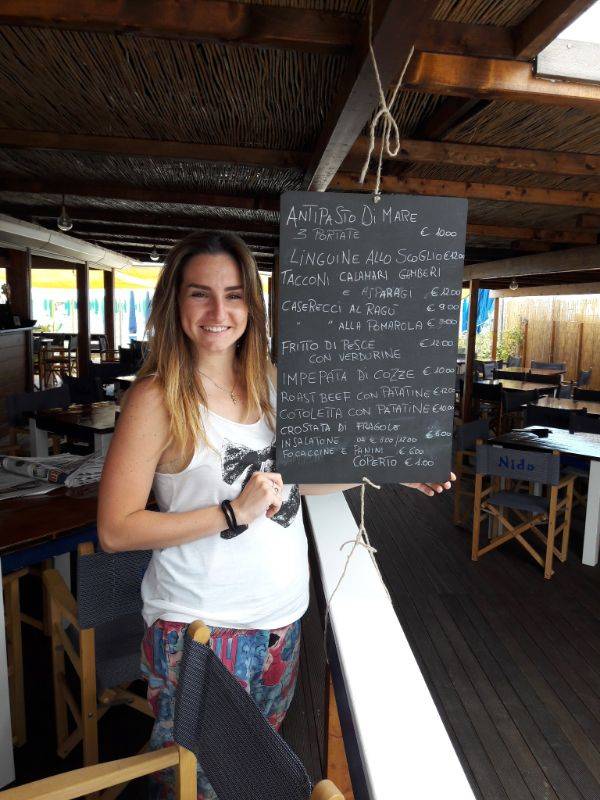 ANTIPASTO DI MARE
3 PORTATE € 10.00
LINGUINE ALLO SCOGLIO € 12.00
TACCONI CALAMARI GAMBERI
E ASPARAGI € 12.00
CASERECCI AL RAGÙ € 9.00
" " ALLA POMAROLA € 9.00
FRITTO DI PESCE € 12.00
CON VERDURINE
IMPEPATA DI COZZE € 10.00
ROAST BEEF CON PATATINE € 12.00
COTOLETTA CON PATATINE € 10.00
CROSTATA DI FRAGOLE € 6.00
INSALATONE DA € 8.00/12.00
FOCACCINE E PANINI € 6.00
COPERTO € 1.00
Nido